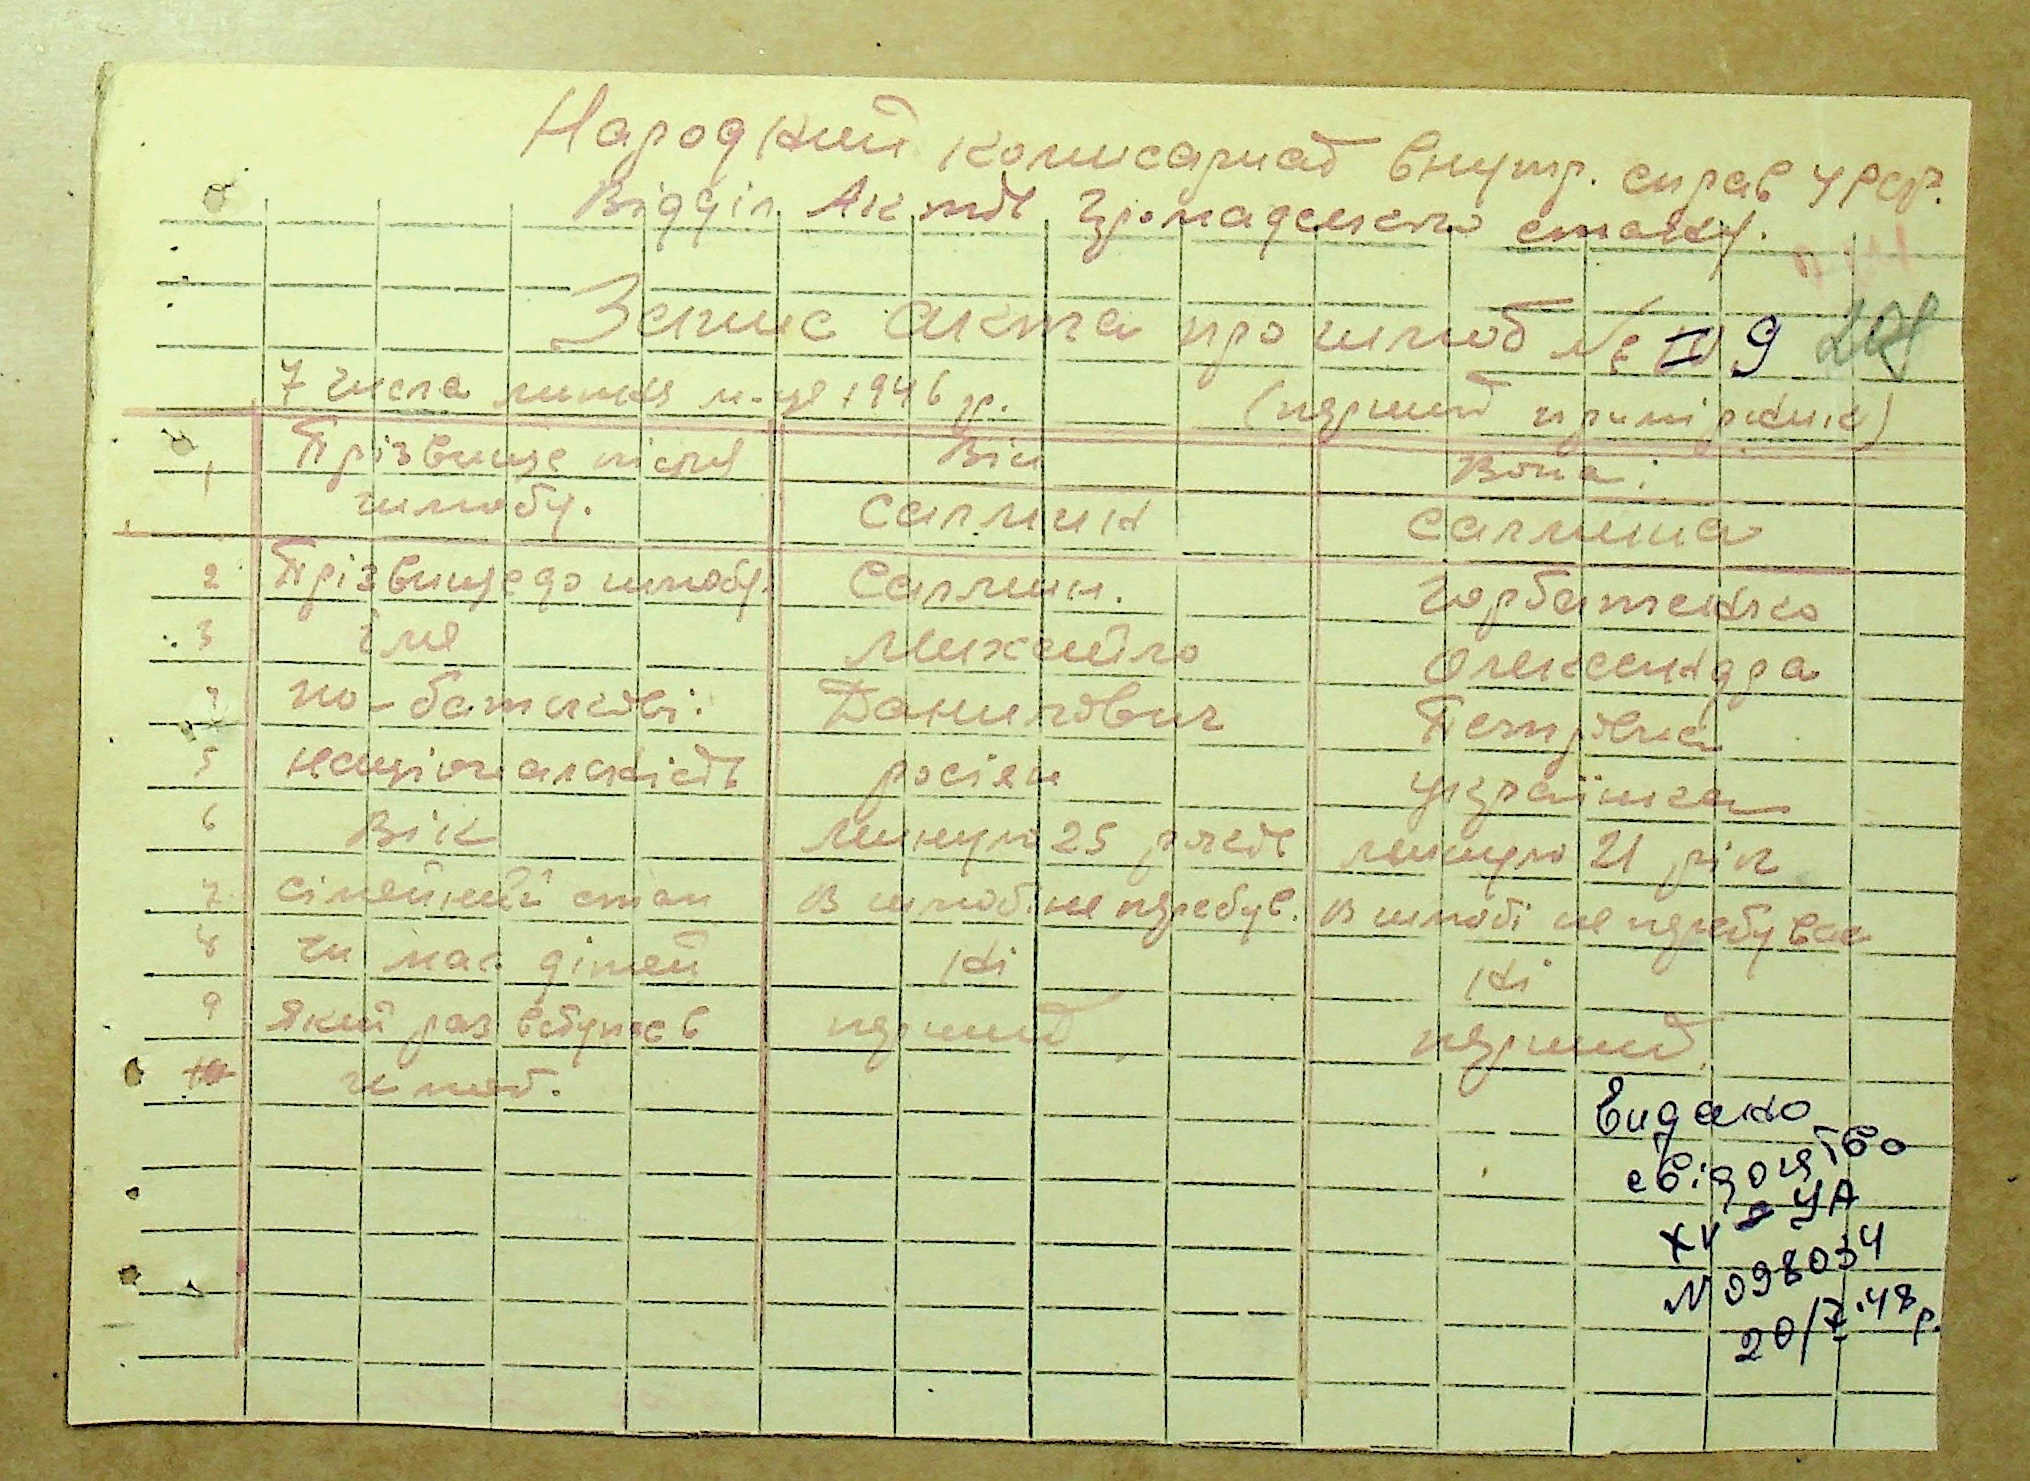 Народний комисариат внутр. справ УРСР.
Відділ Актів Громадського стану.
Запис акта про шлюб № 9
7 числа липня м-ця 1946 р. (перший примірник)
1 Прізвище після шлюбу. Він Саглин Вона: Саглина
2 Прізвище до шлюбу. Саглин. Горбатенко
3 імя Михайло Олександра
4 по-батькові: Данилович Петрівна
5 національність росіян українка
6 Вік минуло 25 років минуло 21 рік
7 сімейний стан В шлюбі не перебув. В шлюбі не перебуває
8 чи має дітей ні ні
9 який раз вступає в перший, перший.
10 шлюб.
Видано
свідоцтво
XV УА
N 098034
20/7.48 р.